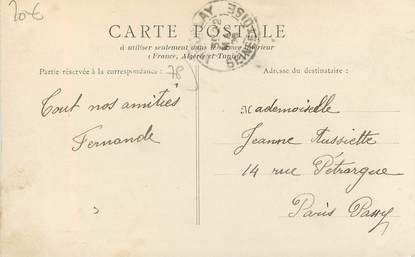 20€
CARTE POSTALE
à utiliser seulement dans le Service Intérieur
(France, Algérie et Tunisie)
Partie réservée à la correspondance :
78
Tout nos amitiés
Fernande
Adresse du destinataire :
Mademoiselle
Jeanne Aussiette
14 rue Petrarque
Paris Passy